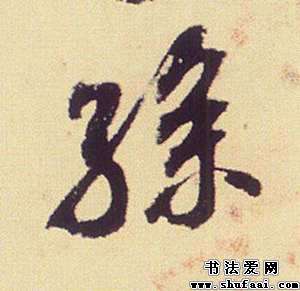 孫
书法爱网
www.shufaai.com